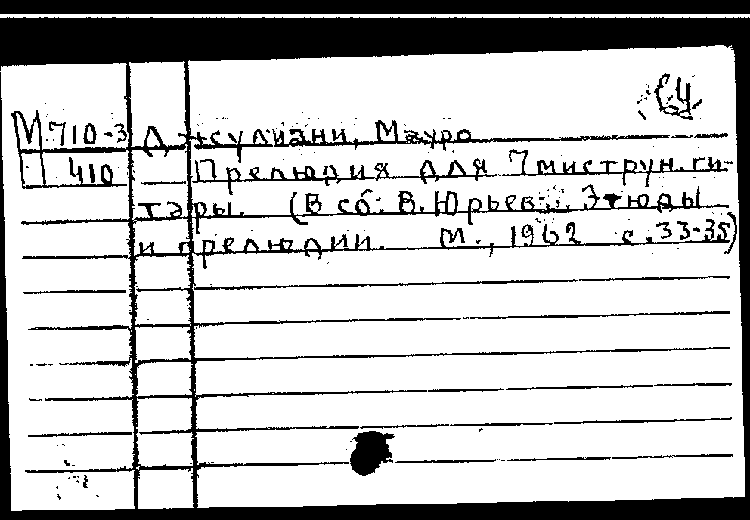 М 710-3 Джулиани, Мауро
410 Прелюдия для 7миструн. ги-
тары. (В сб: В. Юрьев. Этюды
и прелюдии. М., 1962 с. 33-35)